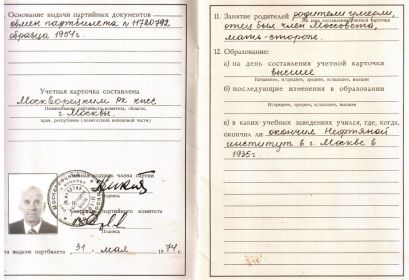 Основание выдачи партийных документов
обмен партбилета n 11720792
образца 1954г.
Учетная карточка составлена
Москворецким РК КПСС
Наименование партийного комитета, области,
г. Москвы.
края, республики (политотдела войсковой части)
подпись члена партии
Секретарь партийного комитета
Подпись
дата выдачи партбилета 31 мая 1974 г.
11. Занятие родителей родители умерли,
На день составления учетной карточки
отец был член Моссовета,
мать-сторож.
12. Образование:
а) на день составления учетной карточки
высшее
Начальное, н/среднее, среднее, н/высшее, высшее
б) последующие изменения в образовании
Н/среднее, среднее, н/высшее, высшее
в) в каких учебных заведениях учился, где, когда,
окончил ли окончил Нефтяной
институт в г. Москве в
1935г.